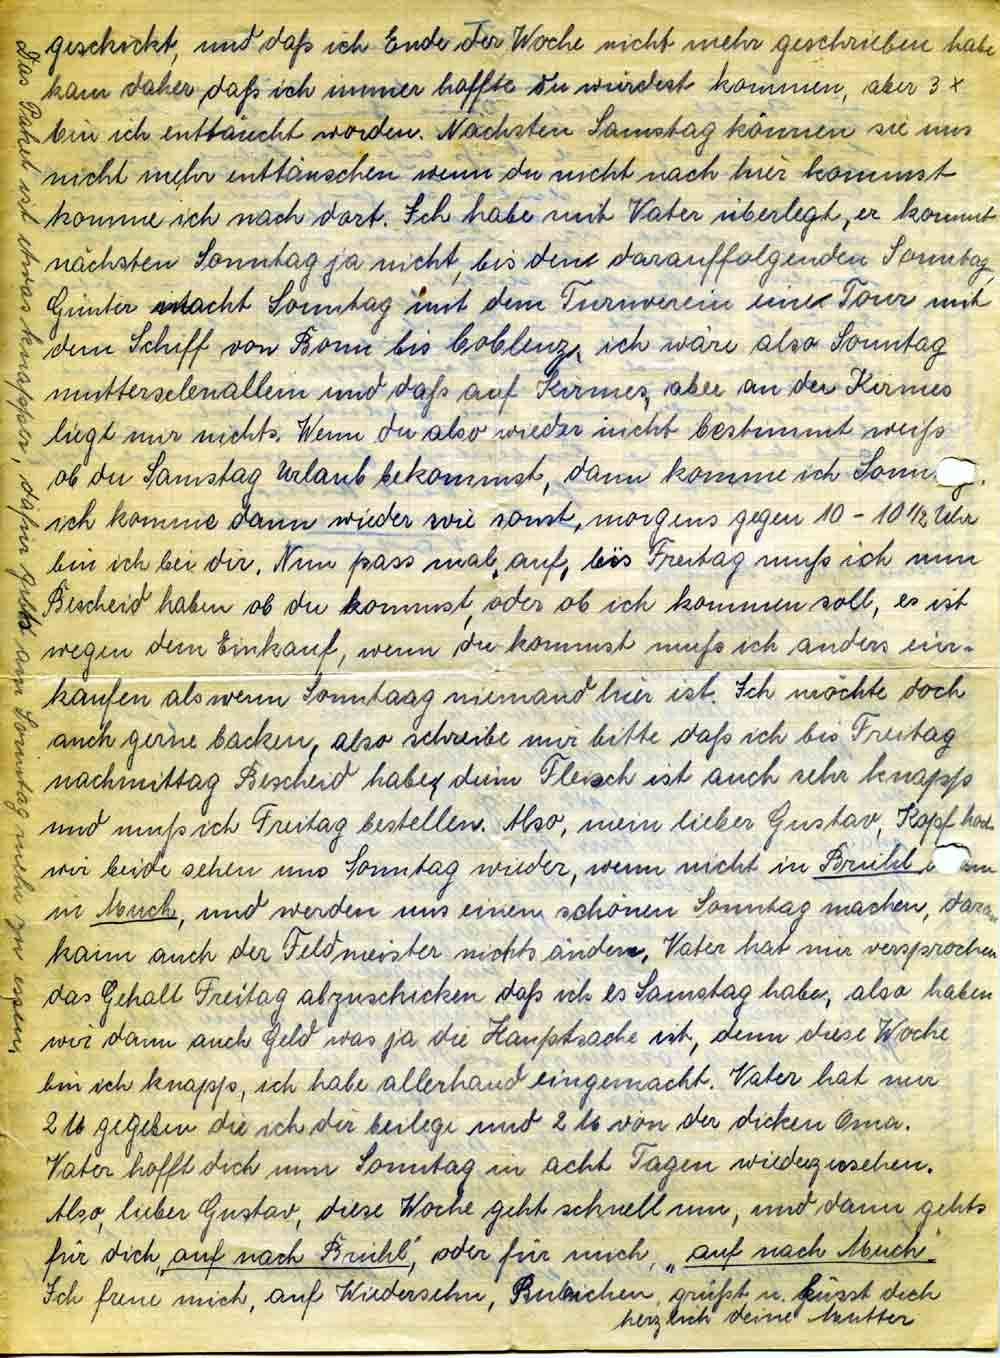 geschickt, und daß ich Ende der Woche nicht mehr geschrieben habe
kam daher daß ich immer hoffte du würdest kommen, aber 3 x
bin ich enttäucht worden. Nächsten Samstag können sie uns
nicht mehr enttäuschen wenn du nicht nach hier kommst
komme ich nach dort. Ich habe mit Vater überlegt, er kommt
nächsten Sonntag ja nicht, bis den darauffolgenden Sonntag,
Günter macht Sonntag mit dem Turnverein eine Tour mit
dem Schiff von Bonn bis Coblenz, ich wäre also Sonntag
mutterselenallein und daß auf Kirmes, aber an der Kirmes
liegt mir nichts. Wenn du also wieder nicht bestimmt weiß
ob du Samstag Urlaub bekommst, dann komme ich
ich komme dann wieder wie sonst, morgens gegen 10 - 10 1/2 Uhr
bin ich bei dir. Nun pass mal auf, bis Freitag muß ich nun
Bescheid haben ob du kommst, oder ob ich kommen soll, es ist
wegen dem Einkauf, wenn du kommst muß ich anders ein-
kaufen als wenn Sonntaag niemand hier ist. Ich möchte doch
auch gerne backen, also schreibe mir bitte daß ich bis Freitag
nachmittag Bescheid habe, denn Fleisch ist auch sehr knapp
und muß ich Freitag bestellen. Also, mein lieber Gustav, Kopf hoch
wir beide sehen uns Sonntag wieder, wenn nicht in Brühl
in Much, und werden uns einen schönen Sonntag machen, daran
kann auch der Feldmeister nichts ändern. Vater hat mir versprochen
das Gehalt Freitag abzuschicken daß ich es Samstag habe, also haben
wir dann auch Geld was ja die Hauptsache ist, denn diese Woche
bin ich knapp, ich habe allerhand eingemacht. Vater hat mir
2 gegeben die ich dir beilege und 2 von der dicken Oma.
Vater hofft dich nun Sonntag in acht Tagen wiederzusehen.
Also, lieber Gustav, diese Woche geht schnell um, und dann gehts
für dich „auf nach Brühl“, oder für mich, „auf nach Much“
Ich freue mich, auf Wiedersehn, Bubichen, grüßt u. küsst dich
herzlich deine Mutter
Das Paket ist etwas knapper, dafür gibts am Sonntag mehr zu essen.